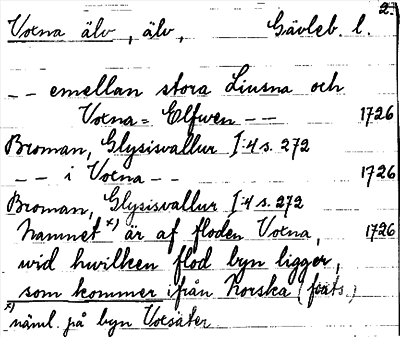 2.
Voxna älv, älv, Gävleb. l.
-- emellan stora Liusna och
Voxna= Elfwen -- 1726
Broman, Glysisvallur I:4 s. 272
-- i Voxna -- 1726
Broman, Glysisvallur I:4 s. 272
Namnet x) är af floden Voxna, 1726
wid hwilken flod byn ligger,
som kommer ifrån Norska (forts.)
x) näml. på byn Voxsäter